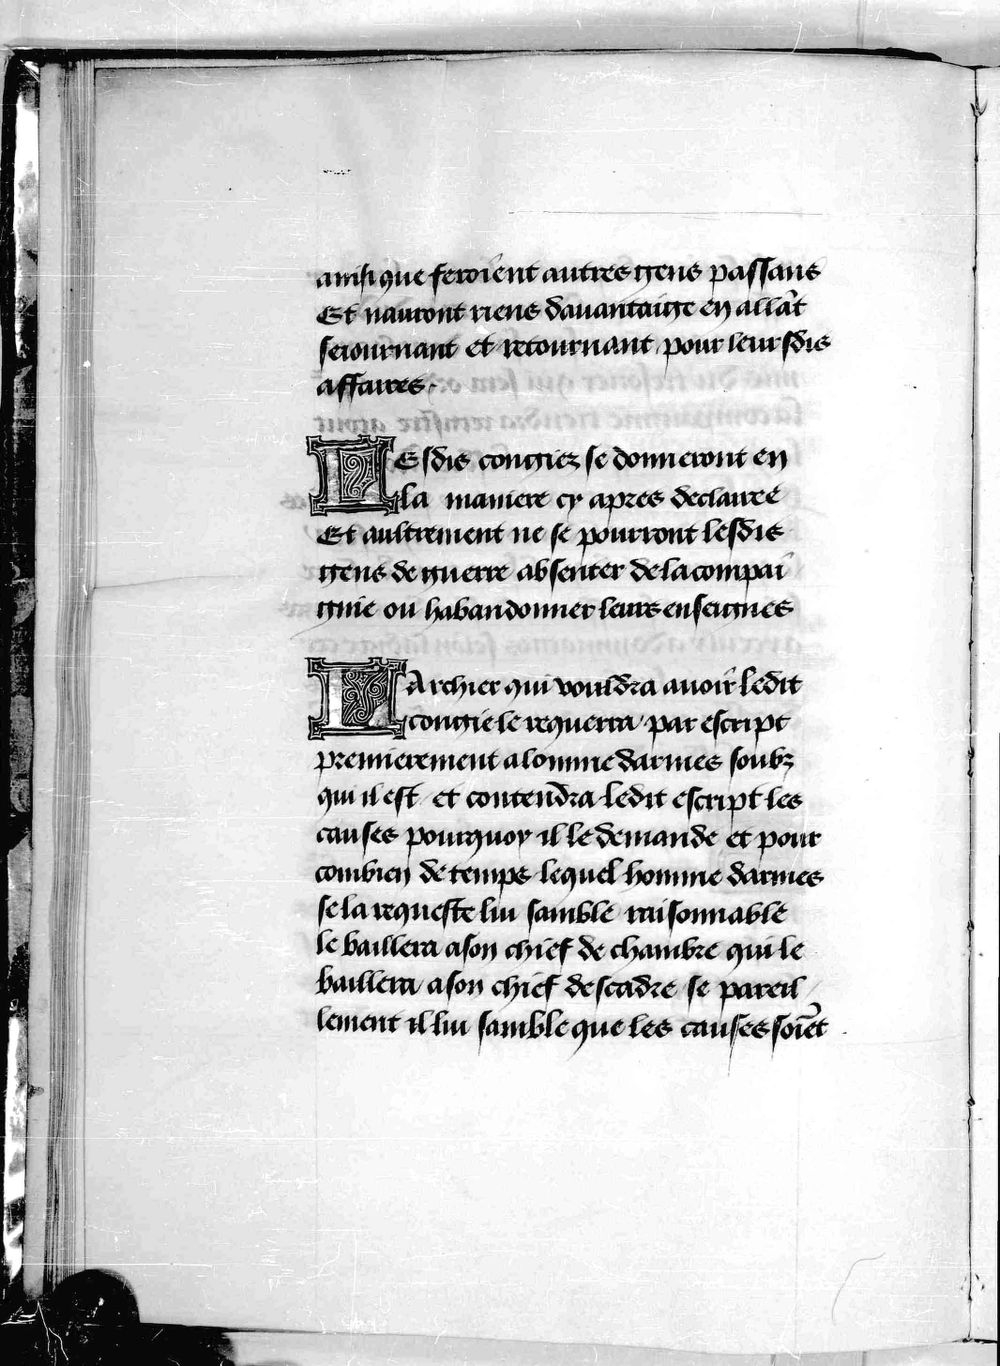 ainsi que feroient autres gens passans
Et nauront riens dauantaige en allāt
seiournant et retournant pour leursdis
affaires.
LEsdis congiez se donneront en
la maniere cy apres declairee
Et aultrement ne se pourront lesdis
gens de guerre absenter de la compai
gnie ou habandonner leurs enseignes
LArchier qui vouldra auoir ledit
congie le requerra par escript
premierement a lomme darmes soubz
qui il est et contendra ledit escript les
causes pourquoy il le demande et pour
combien de temps lequel homme darmes
se la requeste lui samble raisonnable
le baillera a son chief de chambre qui le
baillera a son chief descadre se pareil
lement il lui samble que les causes soiēt